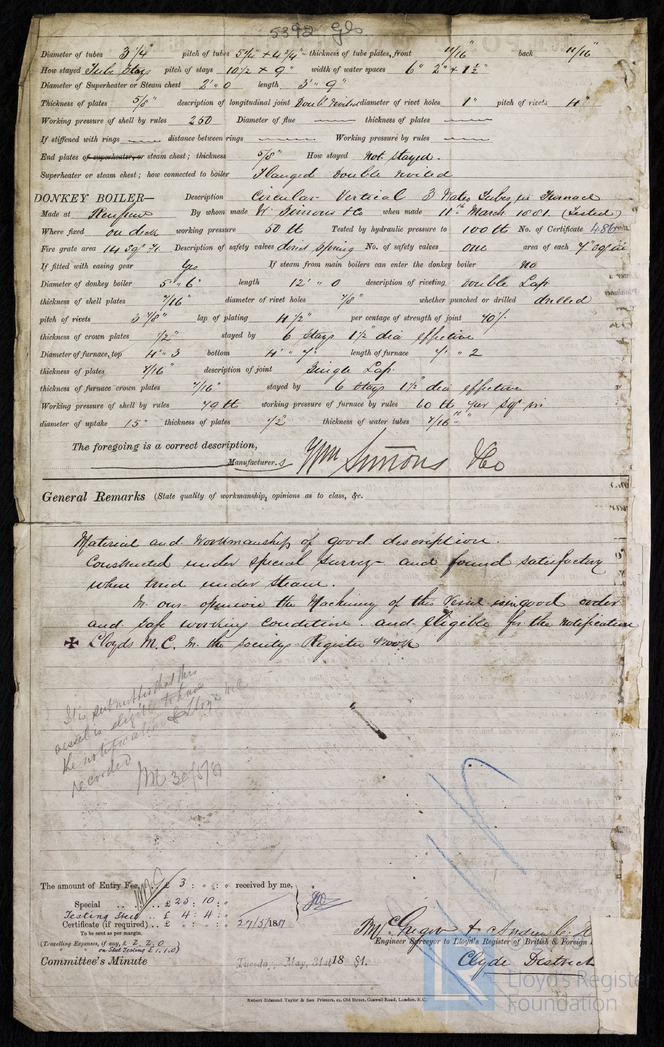 5392 Gls
Diameter of tubes 3 1/4" pitch of tubes 5 1/2" + 4 3/4" thickness of tube plates, front 11/16" back 11/16"
How stayed Tube Stays pitch of stays 10 1/2 + 9" width of water spaces 6" 2" + 1 1/2"
Diameter of Superheater or Steam chest 2'. 0 length 3' 9"
Thickness of plates 5/8" description of longitudinal joint Double riveted diameter of rivet holes 1" pitch of rivets 4"
Working pressure of shell by rules 250 Diameter of flue thickness of plates
If stiffened with rings distance between rings Working pressure by rules
End plates of superheater, or steam chest; thickness 5/8" How stayed Not stayed.
Superheater or steam chest; how connected to boiler Flanged double riveted
DONKEY BOILER— Description Circular Vertical 3 Water Tubes in Furnace
Made at Renfrew By whom made W. Simons & Co when made 11th March 1881 (Tested)
Where fixed on deck working pressure 50 lb Tested by hydraulic pressure to 100 lb No. of Certificate 486
Fire grate area 14 sq ft Description of safety valves direct spring No. of safety valves one area of each 7 sq in
If fitted with easing gear Yes If steam from main boilers can enter the donkey boiler no
Diameter of donkey boiler 5' 6" length 12' 0 description of riveting double Lap
thickness of shell plates 7/16" diameter of rivet holes 7/8" whether punched or drilled drilled
pitch of rivets 3 1/8" lap of plating 4 1/2" per centage of strength of joint 70%
thickness of crown plates 1/2" stayed by 6 Stays 1 1/2" dia effective
Diameter of furnace, top 4'. 3 bottom 4' length of furnace 2
thickness of plates 7/16" description of joint Single Lap
thickness of furnace crown plates 7/16" stayed by 6 stays 1 1/2" dia effective
Working pressure of shell by rules 79 lb working pressure of furnace by rules 60 lb per sq in
diameter of uptake 15" thickness of plates 1/2 thickness of water tubes 7/16"
The foregoing is a correct description,
Wm Simons & Co Manufacturer.s
General Remarks (State quality of workmanship, opinions as to class, &c.
Material and Workmanship of good description.
Constructed under special survey and found satisfactory
when tried under steam.
In our opinion the Machinery of this Vessel is in good order
and safe working condition and Eligible for the notification
✠ Lloyds M.C. in the Societys Register Book
It is submitted that this
vessel is eligible to have
the notification Lloyds MC
recorded
The amount of Entry Fee .. £ 3 : " : " received by me,
Special .. .. £ 25 : 10 : "
Testing Steel .. £ 4 : 4 : "
Certificate (if required) .. £ : : 27/5/1881
To be sent as per margin.
(Travelling Expenses, if any, £ 2.2.0
" on Steel Testing £1.1.0)
Engineer Surveyor to Lloyd's Register of British & Foreign
Clyde District
Committee's Minute Tuesday, May, 31st 1881.
Robert Edmund Taylor & Son Printers, 19, Old Street, Goswell Road, London, E.C.
LR Lloyd's Register
Foundation